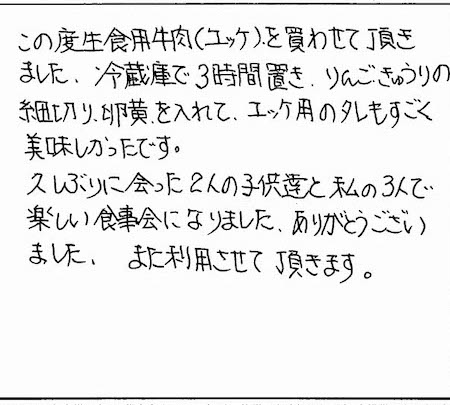 この度生食用牛肉(ユッケ)を買わせて頂き
ました、冷蔵庫で3時間置き、りんご・きゅうりの
細切り、卵黄、を入れて、ユッケ用のタレもすごく
美味しかったです。
久しぶりに会った2人の子供達と私の3人で
楽しい食事会になりました、ありがとうござい
ました、また利用させて頂きます。